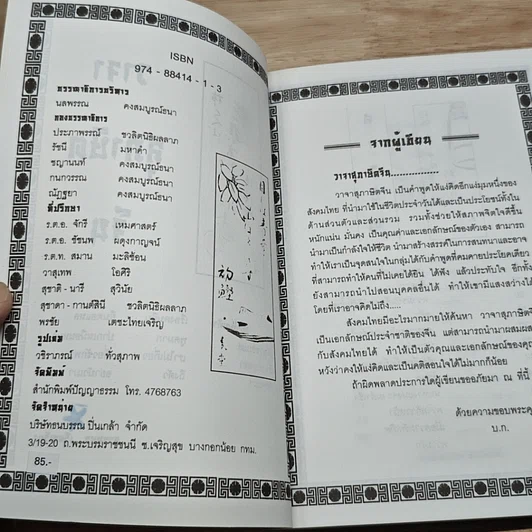 ISBN
974 - 88414 - 1 - 3
บรรณาธิการบริหาร
นลพรรณ คงสมบูรณ์ธนา
กองบรรณาธิการ
ประภาพรรณ์ ชวลิตนิธิผลลาภ
รัชนี มหาคำ
ชญานนท์ คงสมบูรณ์ธนา
กนกวรรณ คงสมบูรณ์ธนา
ณัฏฐยา คงสมบูรณ์ธนา
ที่ปรึกษา
ร.ต.อ. จักรี เหมศาสตร์
ร.ต.อ. ชัชนพ ผดุงกาญจน์
ร.ต.ท. สมาน มะลิซ้อน
วาสุเทพ โอศิริ
สุชาติ - นารี สุวินัย
สุชาดา - กานต์สินี ชวลิตนิธิผลลาภ
พรชัย เตชะไทยเจริญ
รูปเล่ม
วชิราภรณ์ ทั่วสุภาพ
จัดพิมพ์
สำนักพิมพ์ปัญญาธรรม โทร. 4768763
จัดจำหน่าย
บริษัทธนบรรณ ปิ่นเกล้า จำกัด
3/19-20 ถ.พระบรมราชชนนี ซ.เจริญสุข บางกอกน้อย กทม.
85.-
จากผู้เขียน
วาจาสุภาษิตจีน................
วาจาสุภาษิตจีน เป็นคำพูดให้แง่คิดอีกแง่มุมหนึ่งของ
สังคมไทย ที่นำมาใช้ในชีวิตประจำวันได้และเป็นประโยชน์ทั้งใน
ด้านส่วนตัวและส่วนรวม รวมทั้งช่วยให้สภาพจิตใจดีขึ้น
หนักแน่น มั่นคง เป็นคุณค่าและเอกลักษณ์ของตัวเอง สามารถ
นำมาเป็นกำลังใจให้ชีวิต นำมาสร้างสรรค์ในการสนทนาและอาจ
ทำให้เราเป็นจุดสนใจในกลุ่มได้กับคำพูดที่คมคายประโยคเดียว
ที่สามารถทำให้คนที่ไม่เคยได้ยิน ได้ฟัง แล้วประทับใจ อีกทั้ง
ยังสามารถนำไปสอนบุคคลอื่นได้ ทำให้เขามีแสงสว่างได้
โดยที่เราอาจคิดไม่ถึง.....
สังคมไทยมีอะไรมากมายให้ค้นหา วาจาสุภาษิตจี
เป็นเอกลักษณ์ประจำชาติของจีน แต่สามารถนำมาผสมผส
กับสังคมไทยได้ ทำให้เป็นตัวคุณและเอกลักษณ์ของคุณ
หวังว่าคงให้แง่คิดและเป็นคติสอนใจได้ไม่มากก็น้อย
ถ้าผิดพลาดประการใดผู้เขียนขออภัยมา ณ ที่นี้
ด้วยความขอบพระคุ
บ.ก.